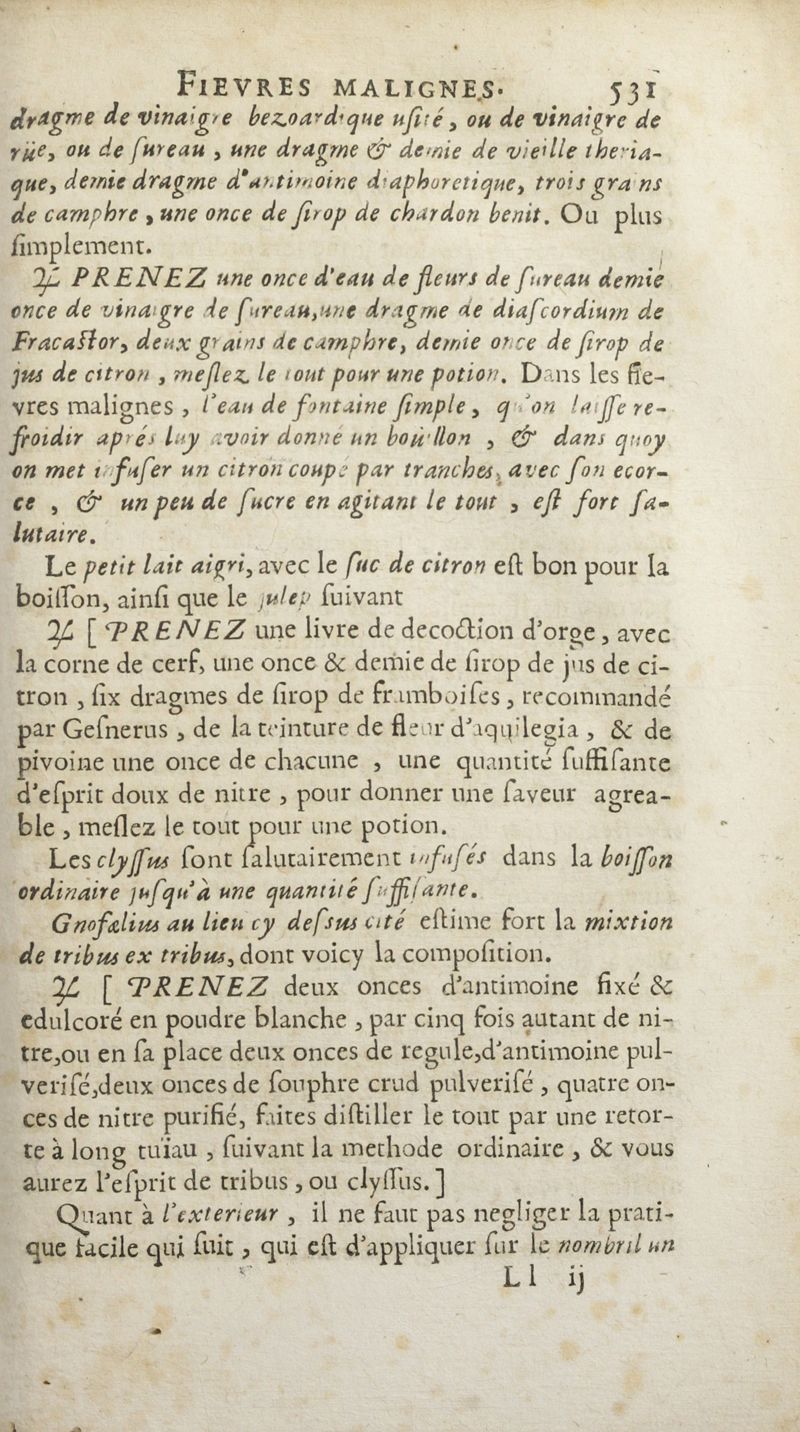 FIEVRES MALIGNES. 531
dragme de vinaigre bezoardique usité, ou de vinaigre de
rüe, ou de ſureau, une dragme & demie de vieille theria-
que, demie dragme d'antimoine diaphoretique, trois grains
de camphre, une once de ſirop de chardon benit. Ou plus
ſimplement.
♃ PRENEZ une once d'eau de fleurs de ſureau demie
once de vinaigre de ſureau, une dragme de diaſcordium de
Fracastor, deux grains de camphre, demie once de ſirop de
jus de citron, meſlez le tout pour une potion. Dans les fie-
vres malignes, l'eau de fontaine ſimple, qu'on laiſſe re-
froidir aprés luy avoir donné un boüillon, & dans quoy
on met infuſer un citron coupé par tranches, avec ſon ecor-
ce, & un peu de ſucre en agitant le tout, eſt fort ſa-
lutaire.
Le petit lait aigri, avec le ſuc de citron eſt bon pour la
boiſſon, ainſi que le julep ſuivant
♃ [ PRENEZ une livre de decoction d'orge, avec
la corne de cerf, une once & demie de ſirop de jus de ci-
tron, ſix dragmes de ſirop de framboiſes, recommandé
par Geſnerus, de la teinture de fleur d'aquilegia, & de
pivoine une once de chacune, une quantité ſuffiſante
d'eſprit doux de nitre, pour donner une ſaveur agrea-
ble, meſlez le tout pour une potion.
Les clyſſus ſont ſalutairement infuſés dans la boiſſon
ordinaire juſqu'à une quantité ſuffiſante.
Gnoſælius au lieu cy deſsus cité eſtime fort la mixtion
de tribus ex tribus, dont voicy la compoſition.
♃ [ PRENEZ deux onces d'antimoine fixé &
edulcoré en poudre blanche, par cinq fois autant de ni-
tre, ou en ſa place deux onces de regule, d'antimoine pul-
veriſé, deux onces de ſouphre crud pulveriſé, quatre on-
ces de nitre purifié, faites diſtiller le tout par une retor-
te à long tuïau, ſuivant la methode ordinaire, & vous
aurez l'eſprit de tribus, ou clyſſus. ]
Quant à l'exterieur, il ne faut pas negliger la prati-
que facile qui ſuit, qui eſt d'appliquer ſur le nombril un
Ll ij